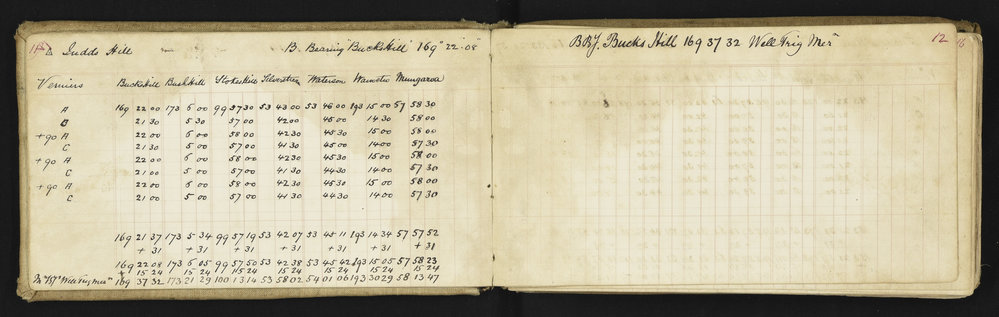 △ Judds Hill B. Bearing "Buckshill" 169° 22' 08"
Verniers Buckshill Bushhill Stokeshill Silverstream Waterson Mungaroa
A 169 22 00 173 6 00 99 57 30 53 43 00 53 46 00 193 15 00 57 58 30
B 21 30 5 30 57 00 42 00 45 00 14 30 58 00
+90 A 22 00 6 00 58 00 42 30 45 30 15 00 58 00
C 21 30 5 00 57 00 41 30 45 00 14 00 57 30
+90 A 22 00 6 00 58 00 42 30 45 30 15 00 58 00
C 21 00 5 00 57 00 41 30 44 30 14 00 57 30
+90 A 22 00 6 00 58 00 42 30 45 30 15 00 58 00
C 21 00 5 00 57 00 41 30 44 30 14 00 57 30
169 21 37 173 5 34 99 57 19 53 42 07 53 45 11 193 14 34 57 57 52
+ 31 + 31 + 31 + 31 + 31 + 31 + 31
169 22 08 173 6 05 99 57 50 53 42 38 53 45 42 193 15 05 57 58 23
+ 15 24 15 24 15 24 15 24 15 24 15 24 15 24
Well Trig Mer" 169 37 32 173 21 29 100 13 14 53 58 02 54 01 06 193 30 29 58 13 47
BRJ. Bucks Hill 169 37 32 Well Trig Mer" 12